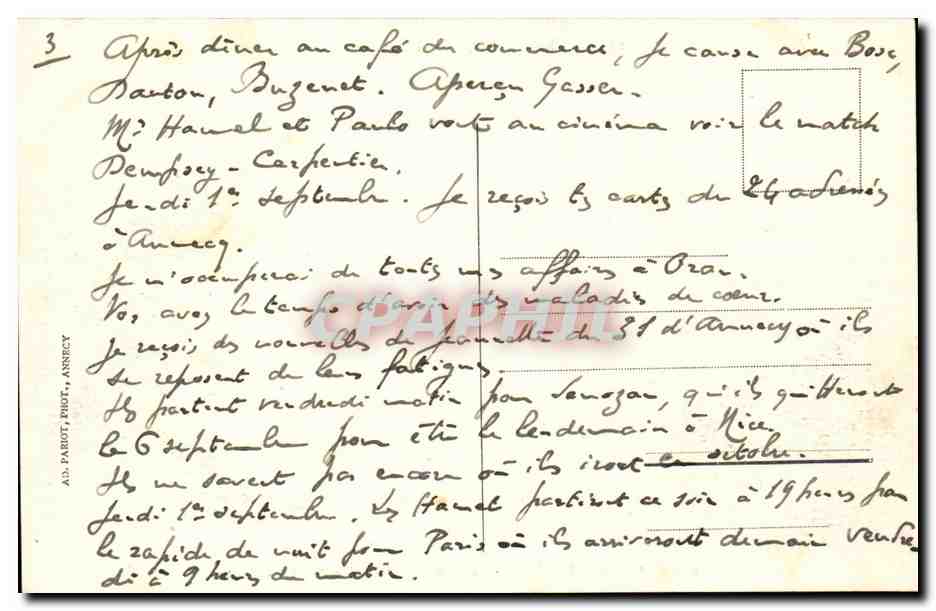 3 Après dîner au café du commerce, je cause avec Bosc,
Danton, Buzenet. Aperçu Gasser.
Mr Hamel et Paulo vont au cinéma voir le match
Dempsey - Carpentier.
Jeudi 1er septembre. Je reçois tes cartes du 24 adressées
à Annecy.
Je m'occuperai de toutes mes affaires à Oran.
Vos avez le temps d'avoir des maladies de coeur.
Je reçois des nouvelles de Jeannette du 31 d'Annecy où ils
se reposent de leurs fatigues.
Ils partent vendredi matin pour Senozan, qu'ils quitteront
le 6 septembre pour être le lendemain à Nice.
Ils ne savent pas encore où ils iront en octobre.
Jeudi 1er septembre. Les Hamel partiront ce soir à 19 heures par
le rapide de nuit pour Paris où ils arriveront demain vendre-
di à 9 heures du matin.
AD. PARIOT, PHOT., ANNECY
CPAPHIL